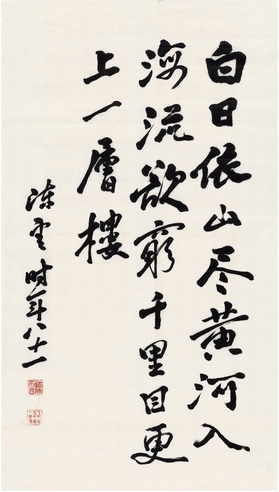 白日依山尽黄河入
海流欲穷千里目更
上一层樓
陈云时年八十一